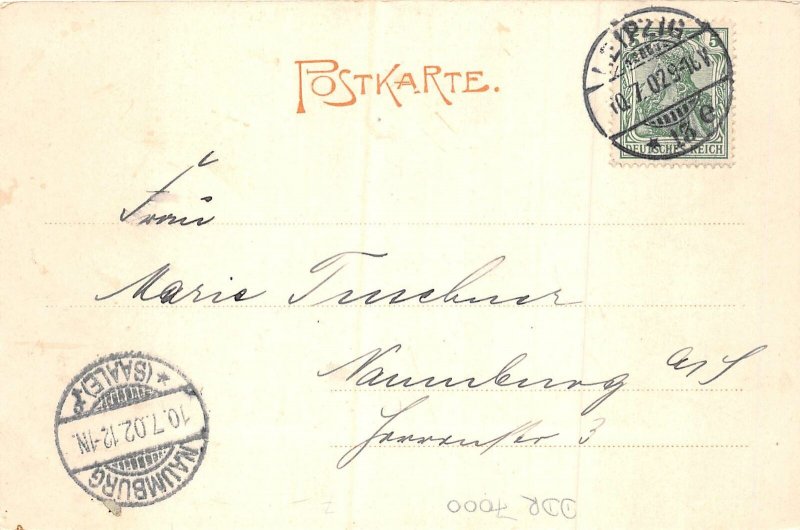 POSTKARTE.
LEIPZIG
10.7.02.9-10V.
* 13 e
5
DEUTSCHES REICH
Frau
Marie
Naumburg a/S
Herrenstr 3
NAUMBURG
10.7.02.12-1N.
* (SAALE)
DDR 7000